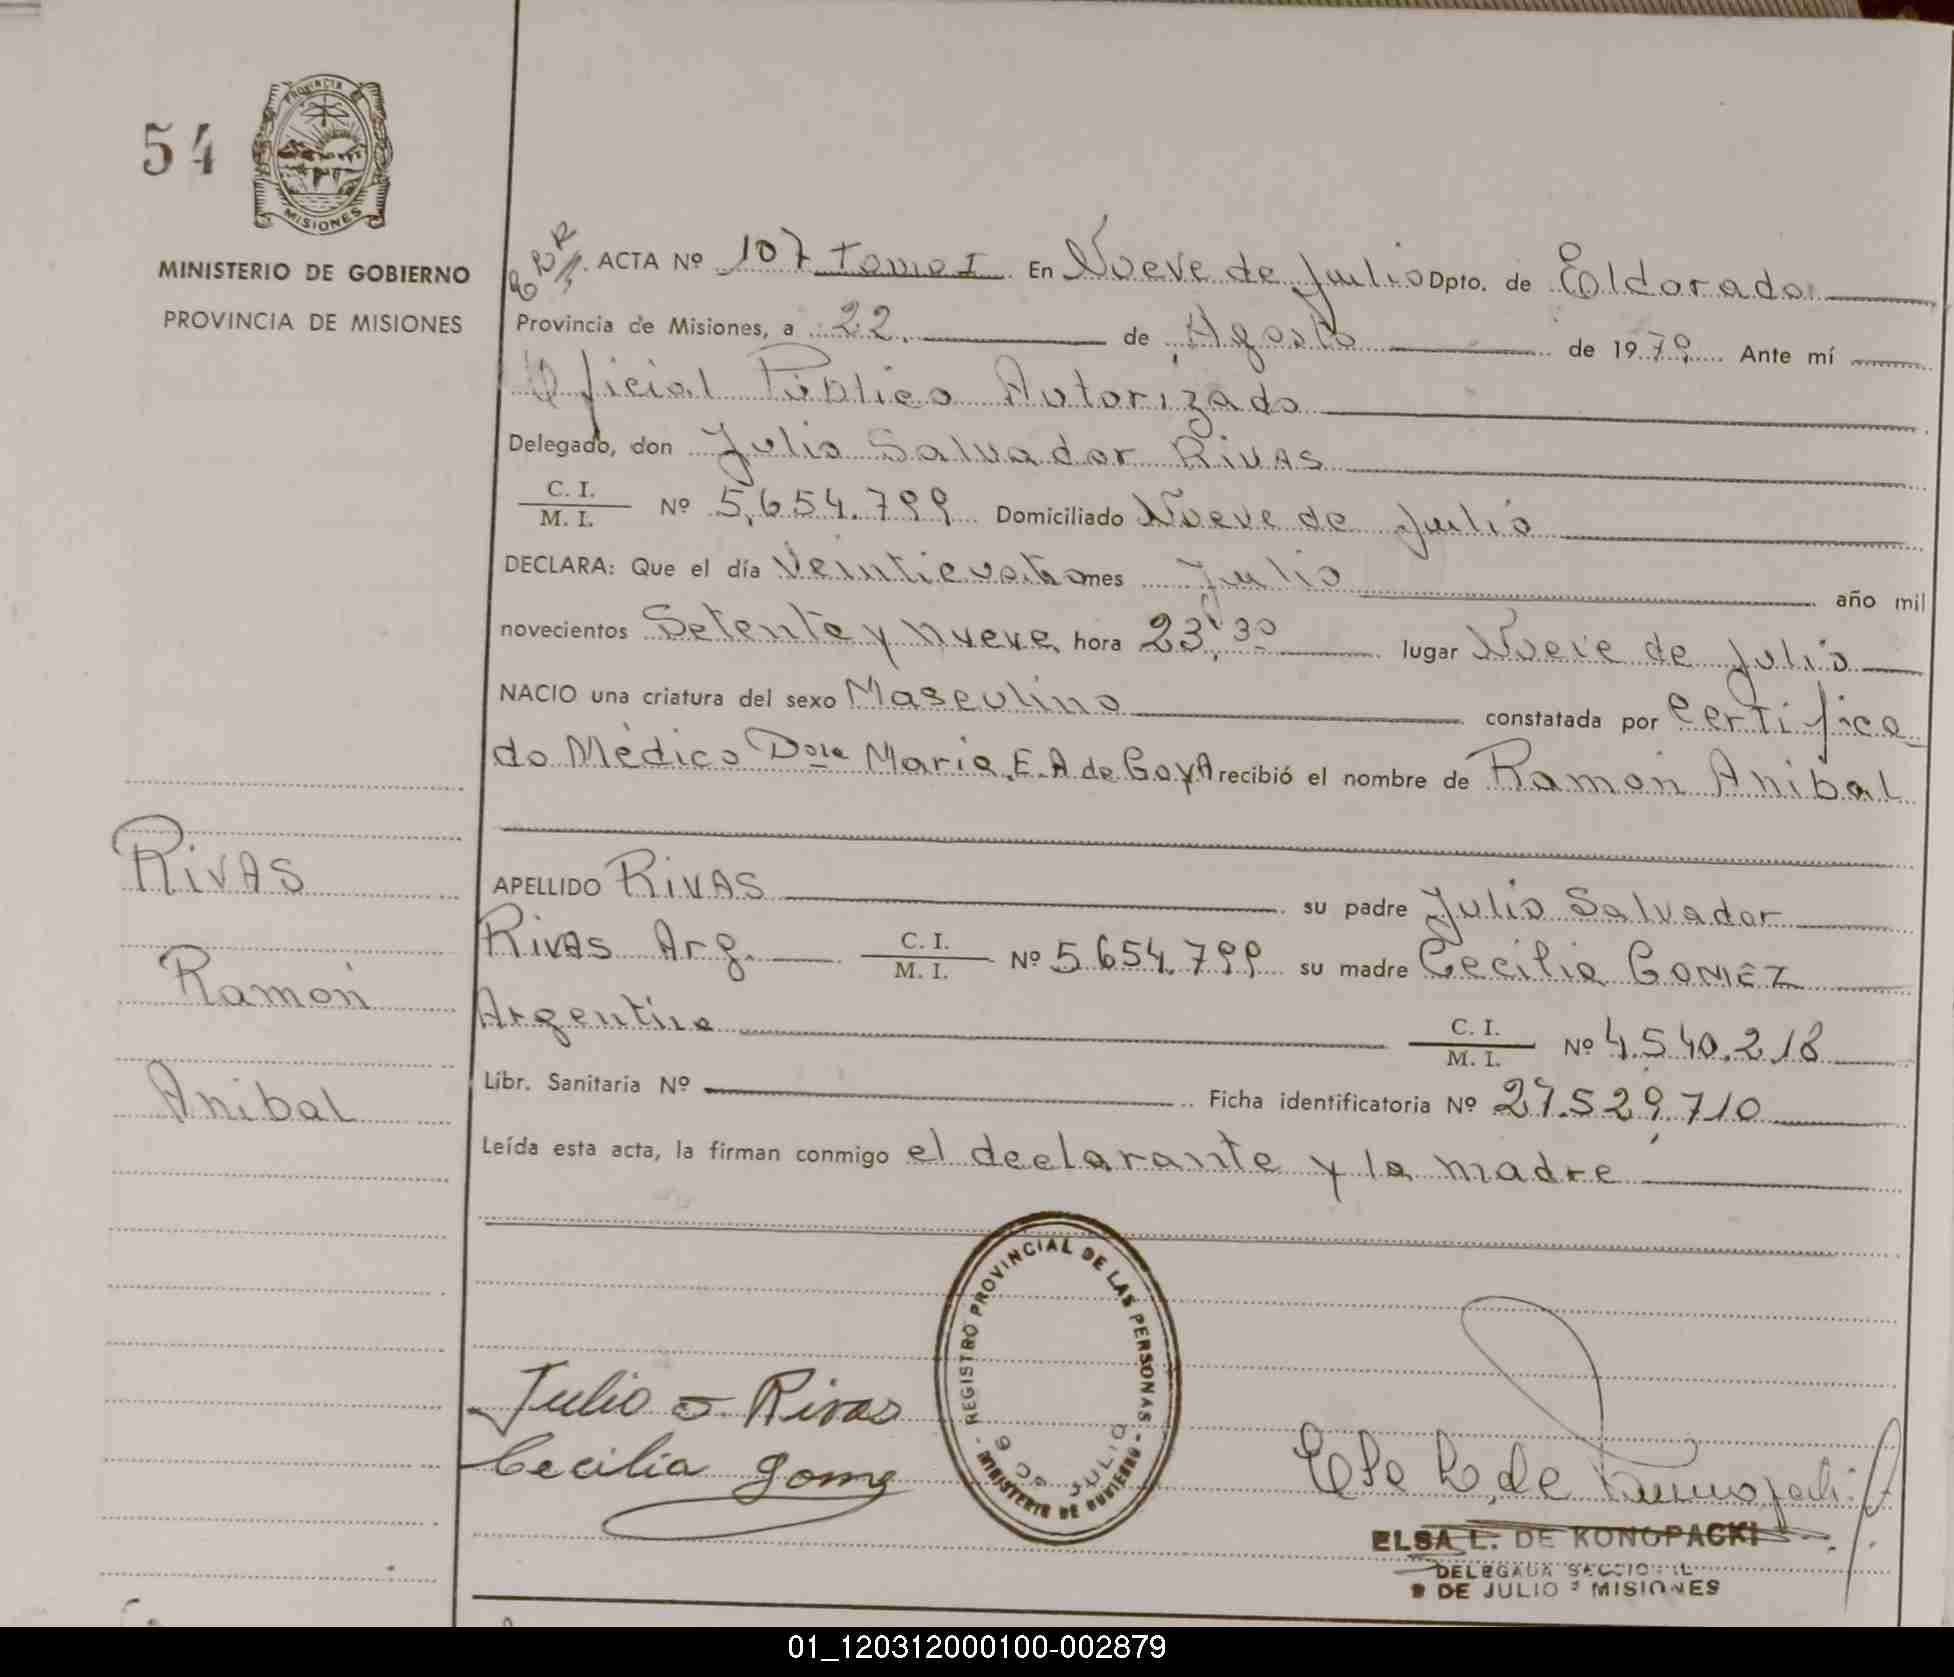 54
PROVINCIA DE
MISIONES
MINISTERIO DE GOBIERNO
PROVINCIA DE MISIONES
ACTA Nº 107 Tomo I En Nueve de Julio Dpto. de Eldorado
Provincia de Misiones, a 22 de Agosto de 1979 Ante mí
Oficial Público Autorizado
Delegado, don Julio Salvador Rivas
C. I. / M. I. Nº 5.654.799 Domiciliado Nueve de Julio
DECLARA: Que el día Veinticuatro mes Julio año mil
novecientos Setenta y nueve hora 23,30 lugar Nueve de Julio
NACIO una criatura del sexo Masculino constatada por Certifica
do Médico Dora María E. A de Goya recibió el nombre de Ramón Anibal
APELLIDO RIVAS su padre Julio Salvador
Rivas Arg. C. I. / M. I. Nº 5.654.799 su madre Cecilia GOMEZ
Argentina C. I. / M. I. Nº 4.540.218
Libr. Sanitaria Nº Ficha identificatoria Nº 27.529.710
Leída esta acta, la firman conmigo el declarante y la madre
RIVAS
Ramón
Anibal
REGISTRO PROVINCIAL DE LAS PERSONAS
MINISTERIO DE GOBIERNO
9 DE JULIO
Julio S. Rivas
Cecilia gomez
ELSA L. DE KONOPACKI
DELEGADA SECCIONAL
9 DE JULIO - MISIONES
01_120312000100-002879